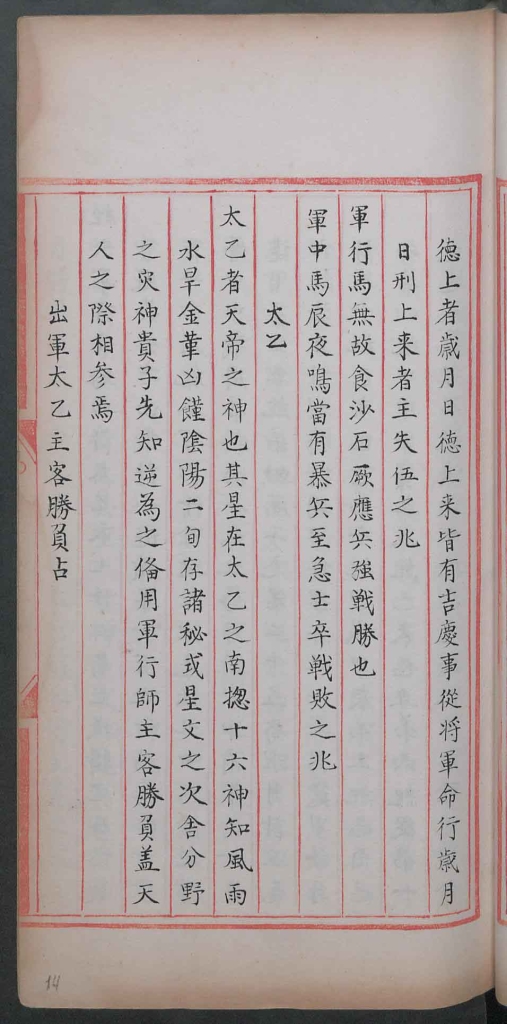 德上者歲月日德上来皆有吉慶事從将軍命行歲月
日刑上来者主失伍之兆
軍行馬無故食沙石厥應兵強戰勝也
軍中馬辰夜鳴當有暴兵至急士卒戦敗之兆
太乙
太乙者天帝之神也其星在太乙之南揔十六神知風雨
水旱金革凶饉陰陽二旬存諸秘或星文之次舍分野
之灾神貴子先知逆為之俻用軍行師主客勝負盖天
人之際相参焉
出軍太乙主客勝負占
14